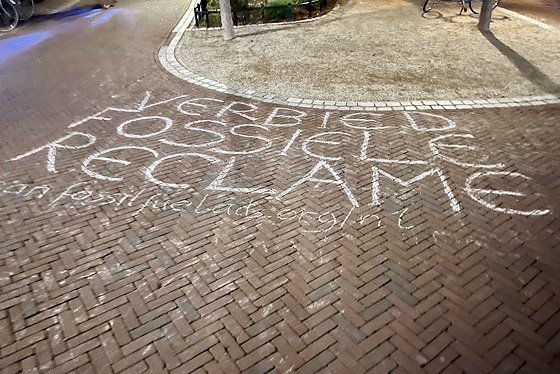 VERBIED
FOSSIELE
RECLAME
banfossilfuelads.org/nl